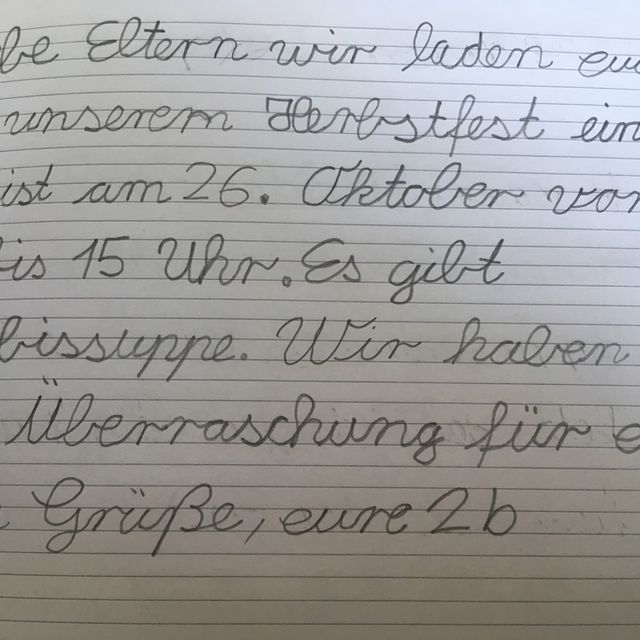 be Eltern wir laden eu
unserem Herbstfest ein
ist am 26. Oktober von
is 15 Uhr. Es gibt
bissuppe. Wir haben
Überraschung für e
Grüße, eure 2b